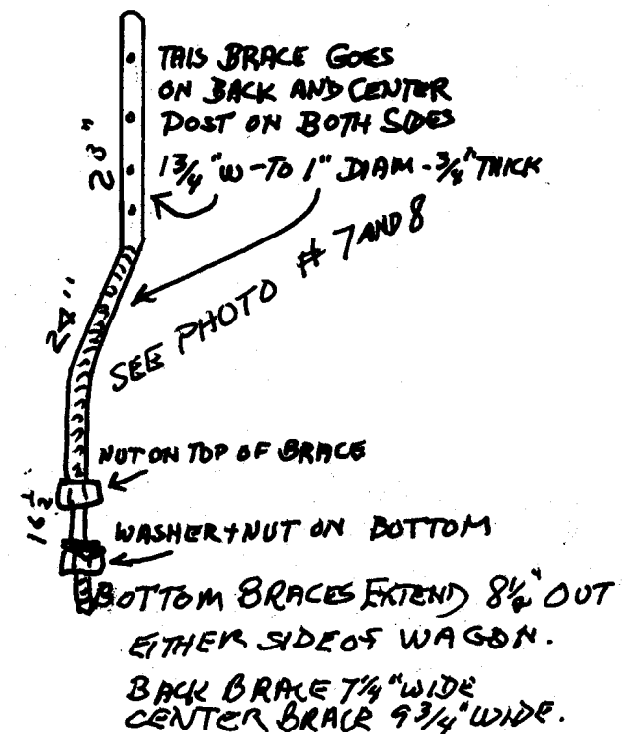 THIS BRACE GOES
ON BACK AND CENTER
POST ON BOTH SIDES
1 3/4" W - TO 1" DIAM - 3/4" THICK
23"
# 7 AND 8
SEE PHOTO
24"
NUT ON TOP OF BRACE
16 1/2
WASHER + NUT ON BOTTOM
BOTTOM BRACES EXTEND 8 1/2" OUT
EITHER SIDE OF WAGON.
BACK BRACE 7 1/4" WIDE
CENTER BRACE 9 3/4" WIDE.